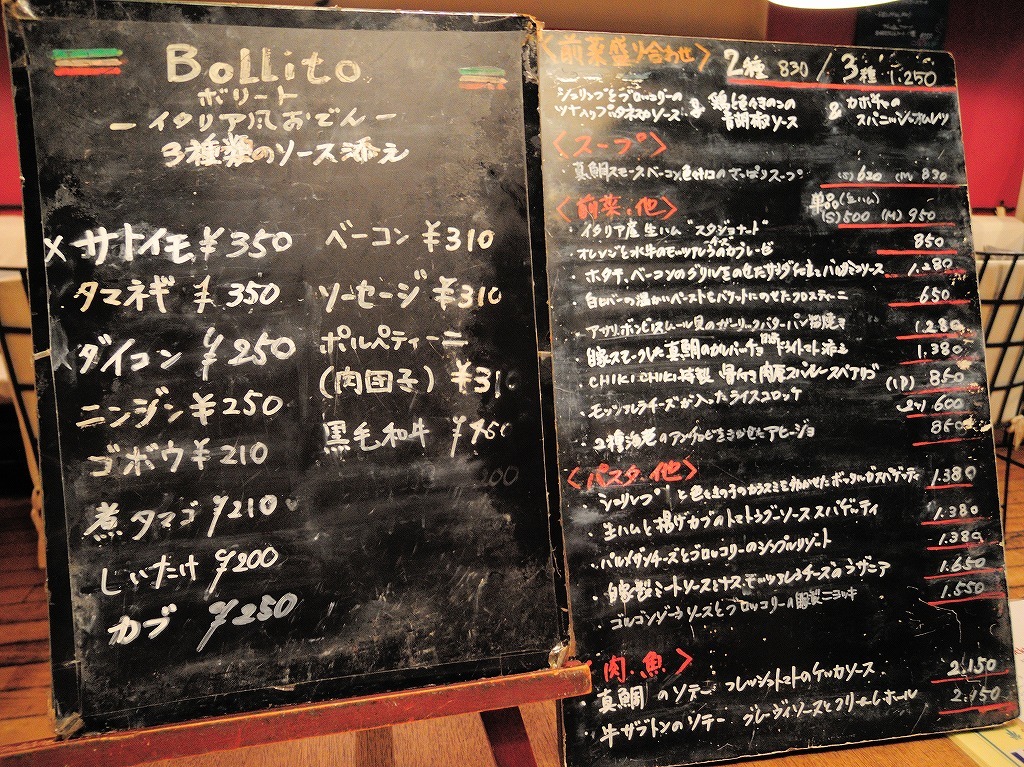 Bollito
ボリート
ーイタリア風おでんー
3種類のソース添え
×サトイモ ¥350
タマネギ ¥350
×ダイコン ¥250
ニンジン ¥250
ゴボウ ¥210
煮タマゴ ¥210
しいたけ ¥200
カブ ¥250
ベーコン ¥310
ソーセージ ¥310
ポルペティーニ
(肉団子) ¥310
黒毛和牛
〈前菜盛り合わせ〉 2種 830 / 3種 1.250
シュリンプとブロッコリーの
& 鶏ともも
青胡椒ソース
& カボチャの
スパニッシュオムレツ
〈スープ〉
真鯛スモークベーコン のさっぱりスープ (S) 620 (M) 830
〈前菜.他〉 単品(生ハム)
(S)500 (M)950
・イタリア産 生ハム "スタジョナート"
・オレンジと水牛のモッツァレラのカプレーゼ 850
・ホタテ、ベーコンのグリルをのせたサラダ バルサミコソース 1.280
・白レバーの温かいペーストをバケットにのせたクロスティーニ 650
・アサリ ムール貝のガーリックバター 1.280
・自家スモークした真鯛のカルパッチョ ドライトマト添え 1.380
・CHIKI CHIKI特製 骨付き肉厚スパイシースペアリブ (1P) 850
・モッツァレラチーズが入ったライスコロッケ (2ヶ) 600
・2種海老のアンチョビをきかせたアヒージョ 850
〈パスタ.他〉
・シュリンプ と 1.380
・生ハムと揚げカブのトマトラグーソース スパゲティ 1.380
・パルメザンチーズとブロッコリーのシンプルリゾット 1.380
・自家製ミートソースとナス、モッツァレラチーズのラザニア 1.650
・ゴルゴンゾーラソースとブロッコリーの自家製ニョッキ 1.550
〈肉.魚〉
・真鯛のソテー フレッシュトマトのケッカソース 2.150
・牛ザブトンのソテー グレービィソースとクリームレホール 2.150